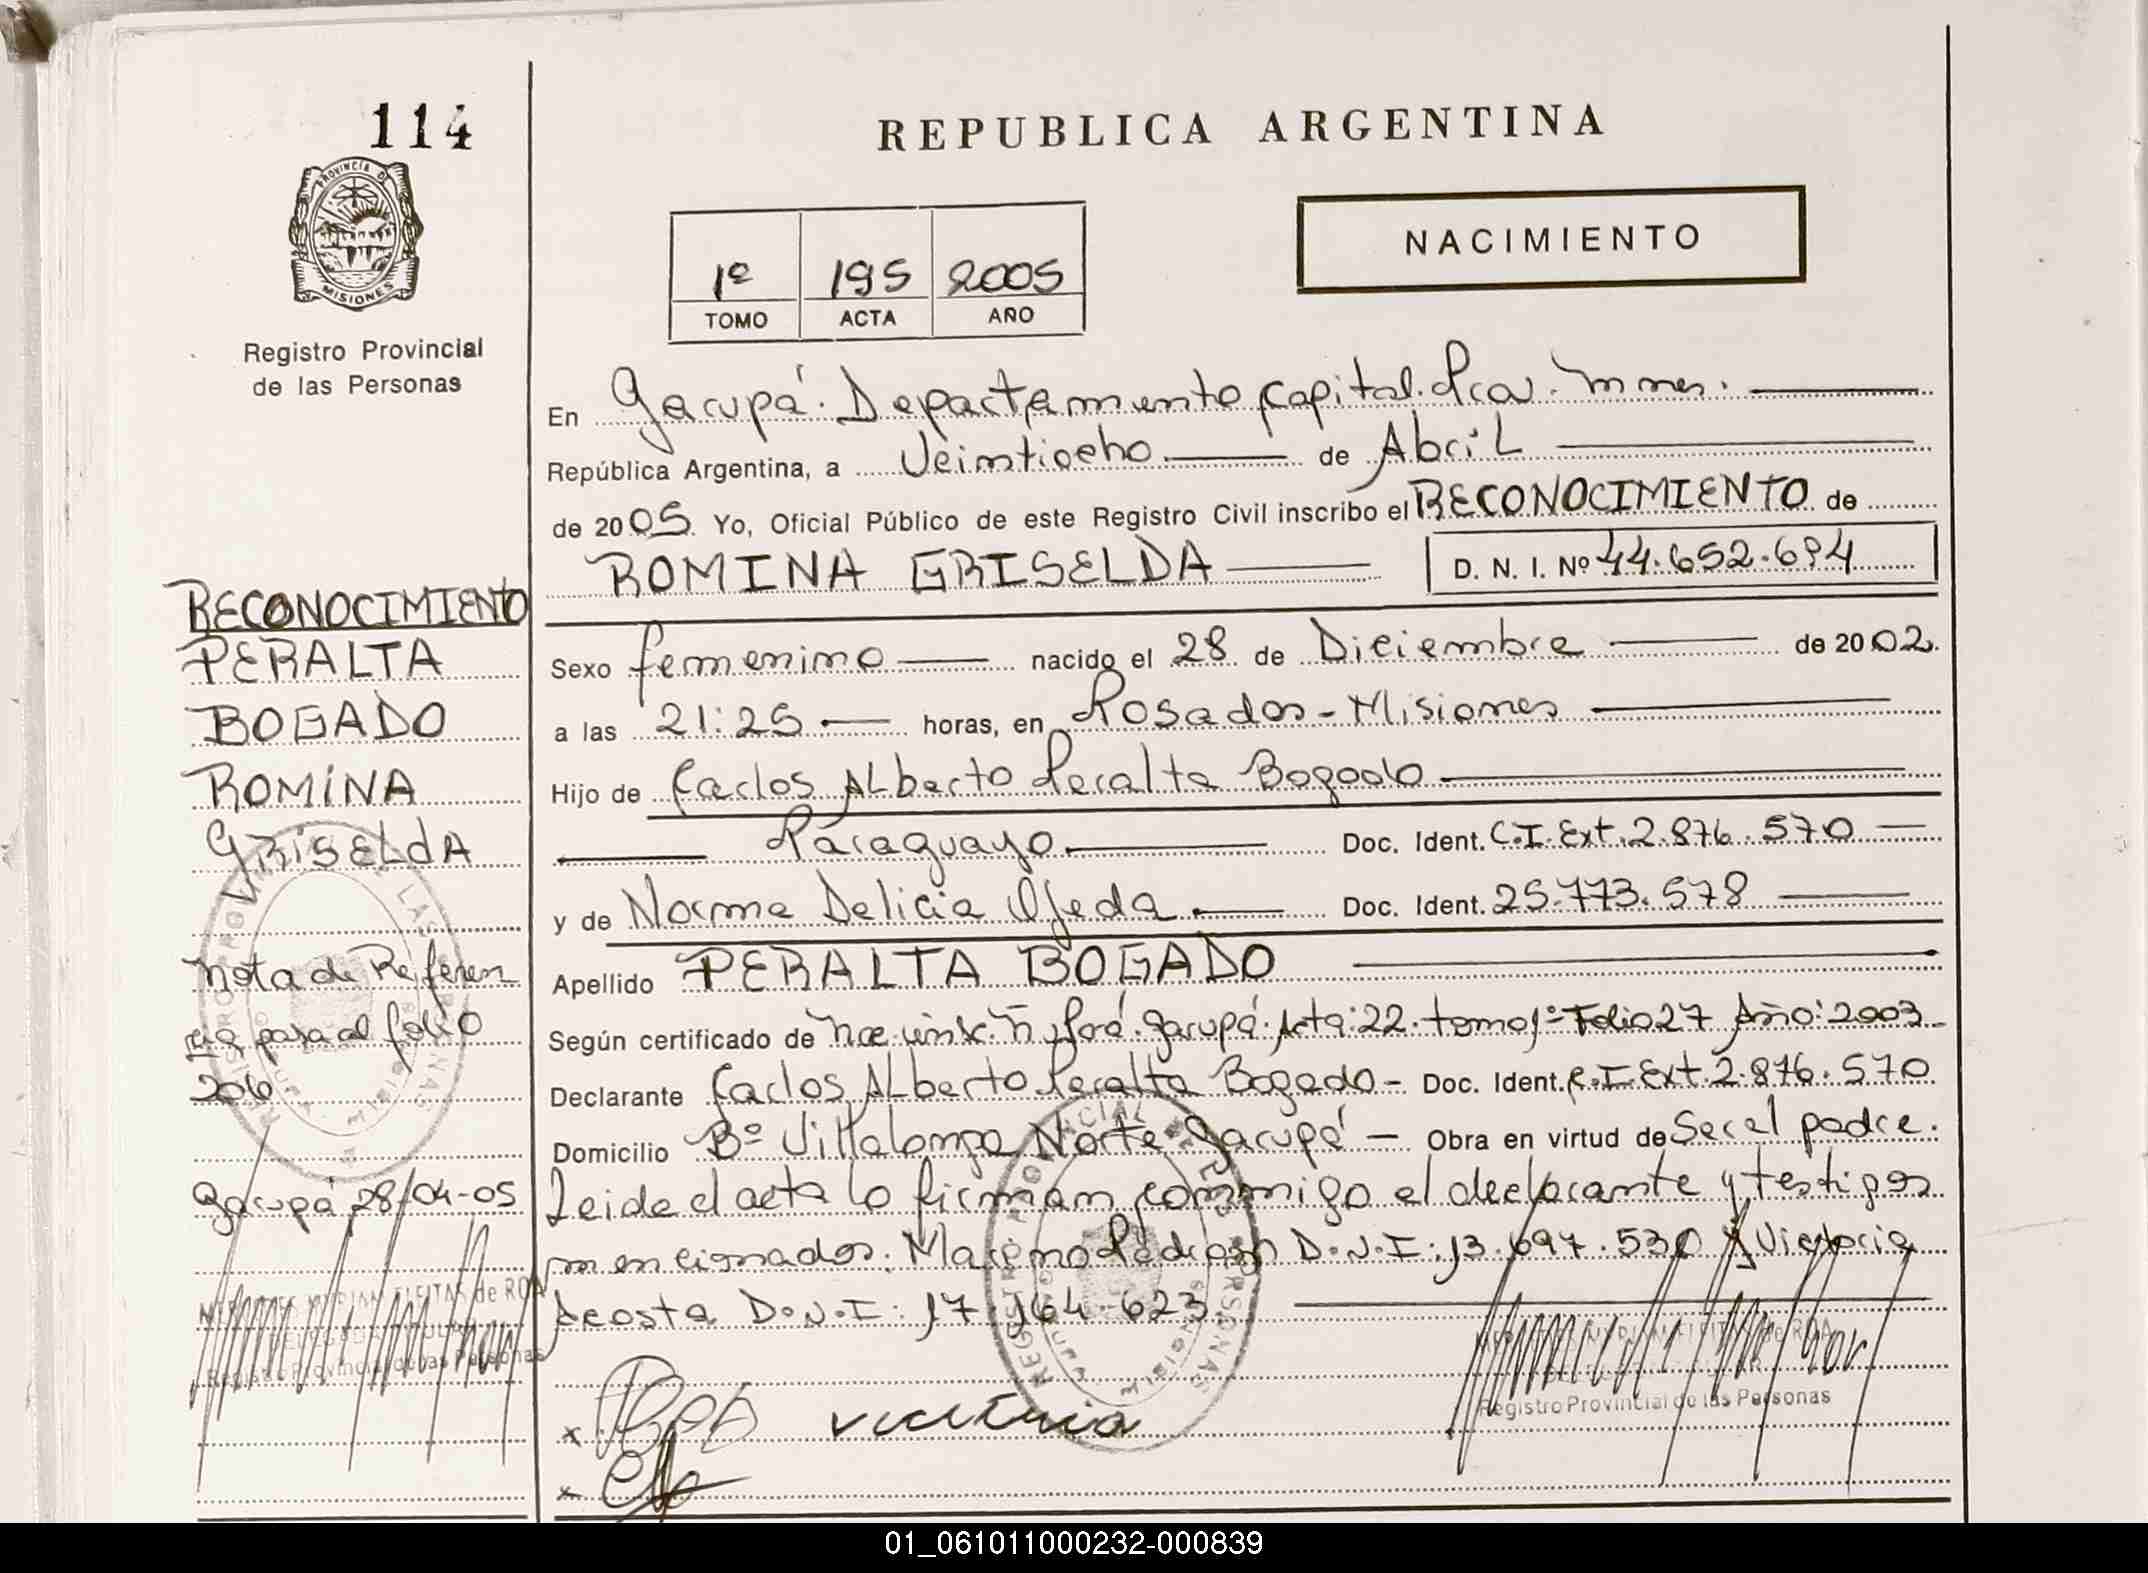 114
PROVINCIA DE
MISIONES
Registro Provincial
de las Personas
REPUBLICA ARGENTINA
1º 195 2005
TOMO ACTA AÑO
NACIMIENTO
En Garupá. Departamento Capital. Pcia. Mnes.
República Argentina, a Veintiocho de Abril
de 2005. Yo, Oficial Público de este Registro Civil inscribo el RECONOCIMIENTO de
ROMINA GRISELDA D. N. I. Nº 44.652.694
Sexo femenino nacido el 28 de Diciembre de 2002.
a las 21:25 horas, en Posadas - Misiones
Hijo de Carlos Alberto Peralta Bogado
Paraguayo Doc. Ident. C.I. Ext. 2.876.570
y de Norma Delicia Ojeda Doc. Ident. 25.773.578
Apellido PERALTA BOGADO
Según certificado de Garupá. Acta: 22. tomo 1º Folio 27 Año: 2003
Declarante Carlos Alberto Peralta Bogado - Doc. Ident. C.I. Ext. 2.876.570
Domicilio Bº Villalonga Norte Garupá - Obra en virtud de Ser el padre.
Leida el acta lo firman conmigo el declarante y testigos
mencionados. D.N.I: 13.697.530 y Victoria
Acosta D.N.I: 17.164.623.
victoria
Registro Provincial de las Personas
RECONOCIMIENTO
PERALTA
BOGADO
ROMINA
GRISELdA
Nota de Referen
cia pasa al folio
206
Garupá 28/04-05
Registro Provincial de las Personas
01_061011000232-000839